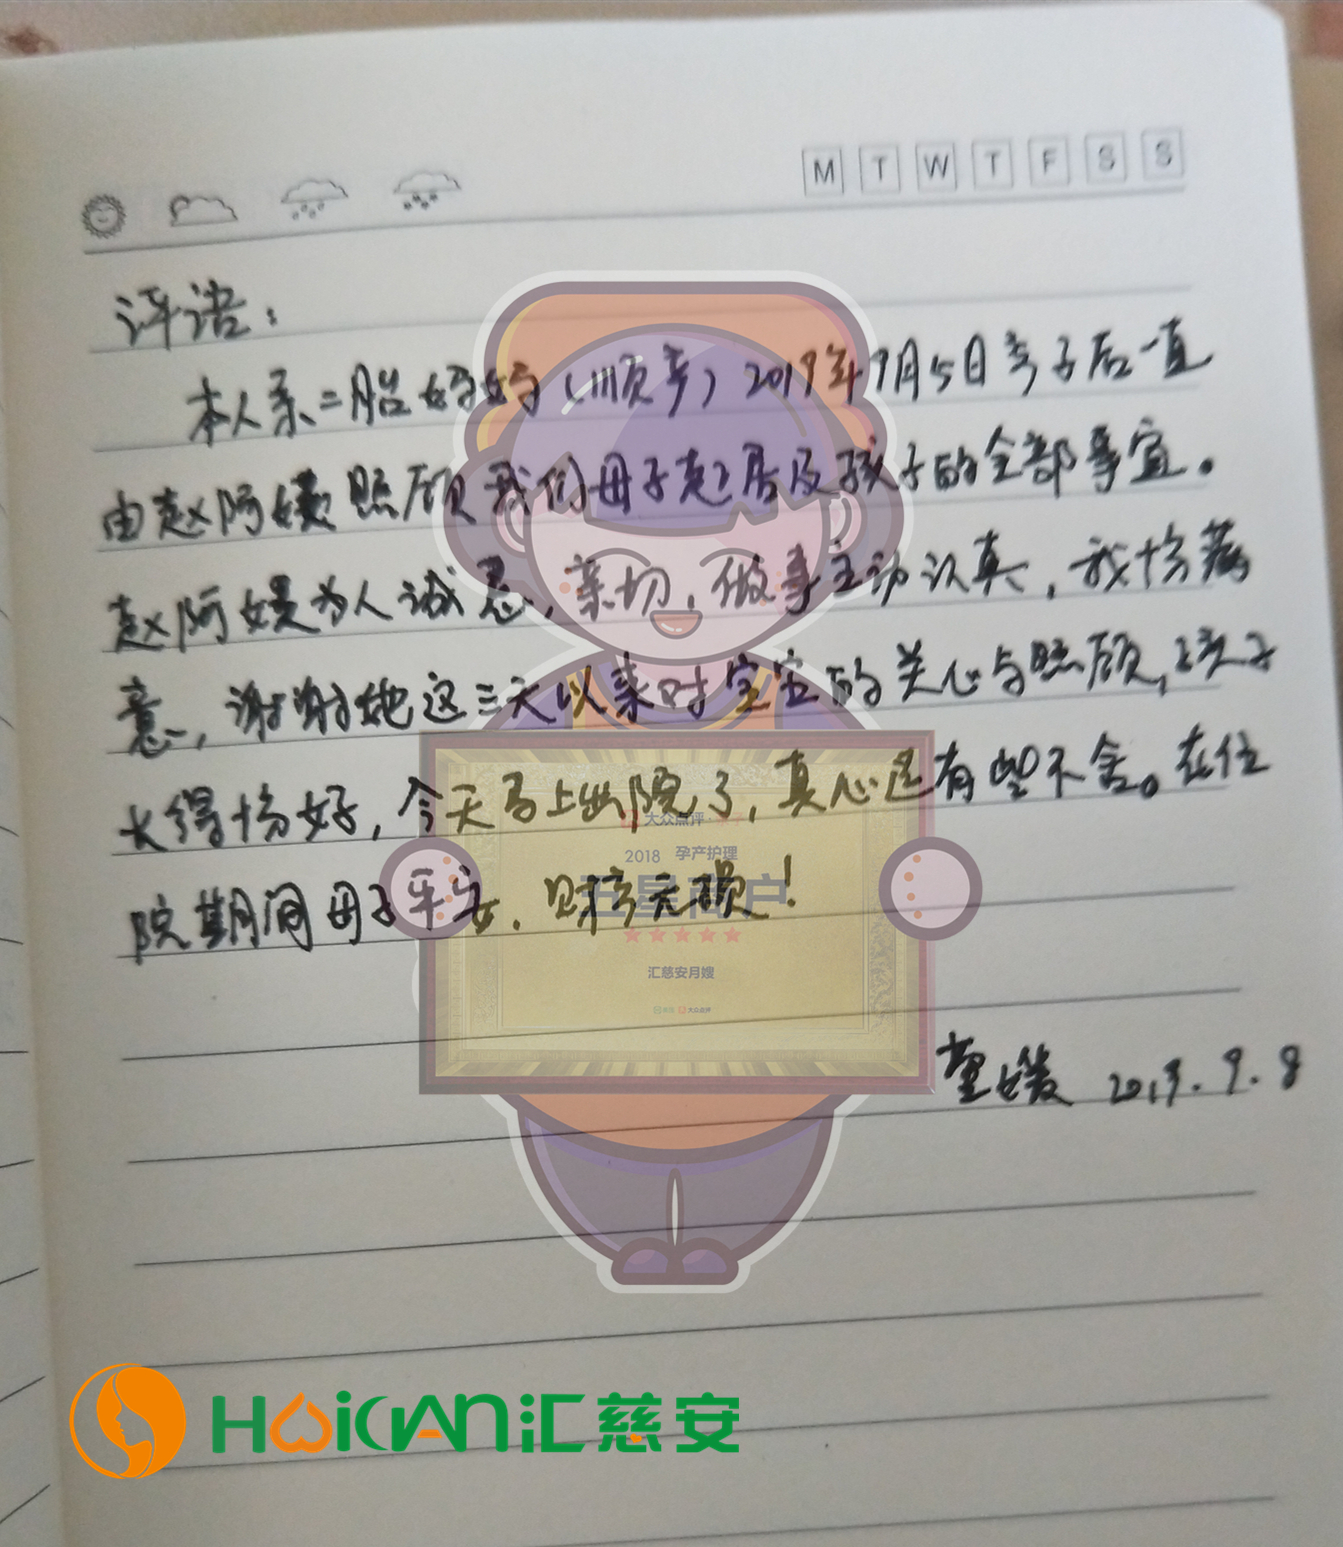 M T W T F S S
评语：
本人系二胎妈妈（顺产）2019年9月5日产子后一直
由赵阿姨照顾我们母子起居及孩子的全部事宜。
赵阿姨为人诚恳，亲切，做事主动认真，我十分满
意，谢谢她这三天以来对宝宝的关心与照顾，孩子
长得十分好，今天马上出院了，真心还有些不舍。在住
院期间母子平安，财产无损！
大众点评
2018 孕产护理
五星商户
汇慈安月嫂
大众点评
2019.9.8
HUICIAN汇慈安